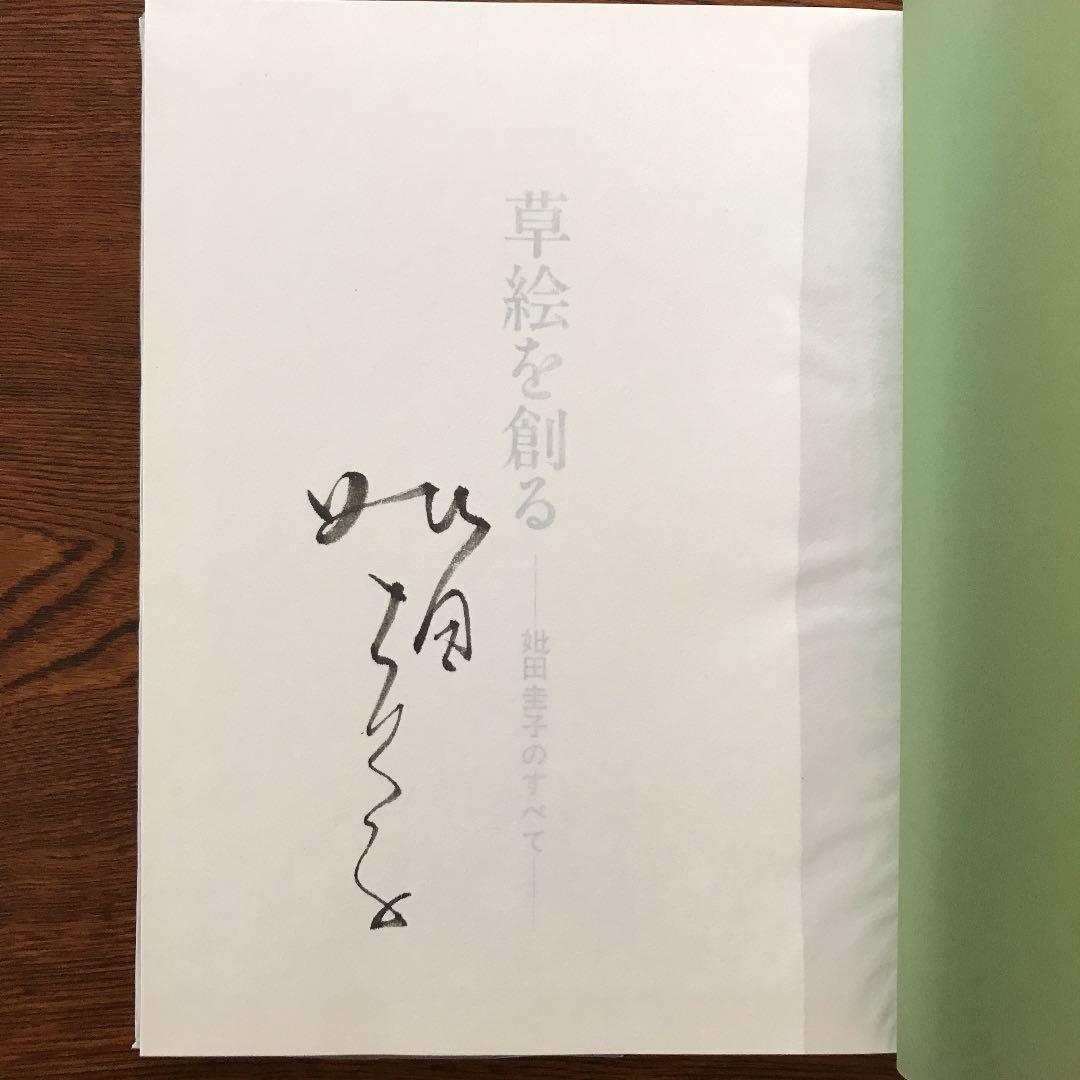 草絵を創る
——妣田圭子のすべて——
妣田
圭子